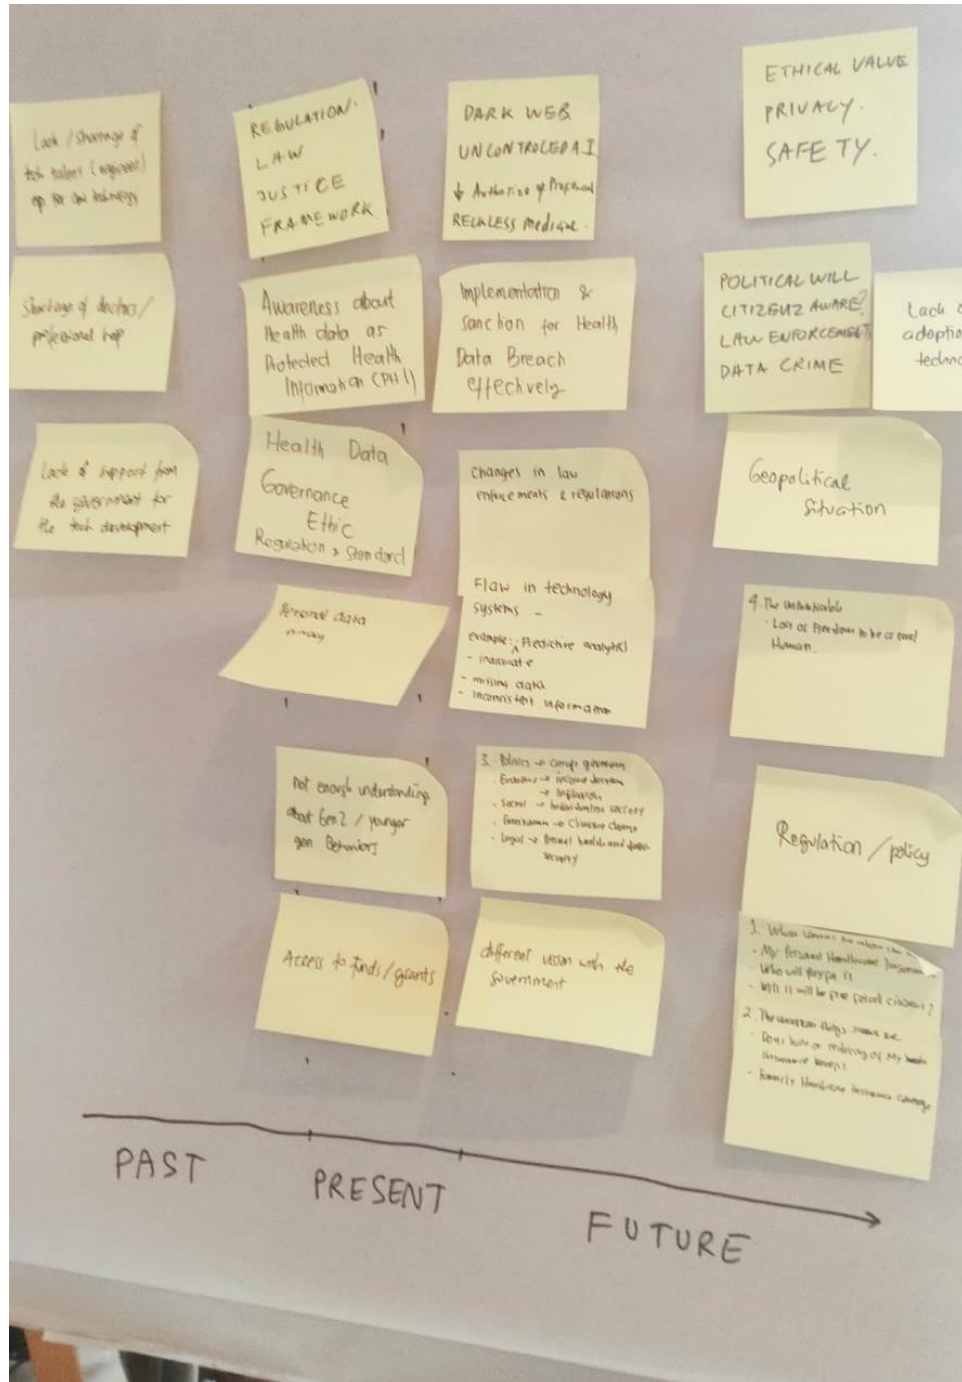 Lack / Shortage of
tech talent (engineer)
for technology
Shortage of doctors /
professional help
Lack of support from
the government for
the tech development
REGULATION.
LAW
JUSTICE
FRAMEWORK
Awareness about
Health data as
Protected Health
Information (PHI)
Health Data
Governance
Ethic
Regulation & Standard
Personal data
privacy
not enough understanding
about GenZ / younger
gen Behaviors
Access to funds/grants
DARK WEB
UNCONTROLED A.I
↓ Authorize of
RECKLESS Medicine.
Implementation &
Sanction for Health
Data Breach
effectively
Changes in law
enforcements & regulations
Flaw in technology
systems -
example: Predictive analytics
- inaccurate
- missing data
- inconsistent information
3. Politics → government
Economic → income
→ inflation
Social → society
→ Climate change
Legal → Personal health and
security
different vision with the
government
ETHICAL VALUE
PRIVACY.
SAFETY.
POLITICAL WILL
CITIZENZ AWARE?
LAW ENFORCEMENT
DATA CRIME
Lack
adoptio
techno
Geopolitical
Situation
4. The
- Loss of Freedom to be a real
Human.
Regulation / policy
1. What
- My Personal Healthcare
- Who will
- Will it will be free for all citizens?
2. The things
- of My
insurance
- Family Insurance coverage
PAST
PRESENT
FUTURE